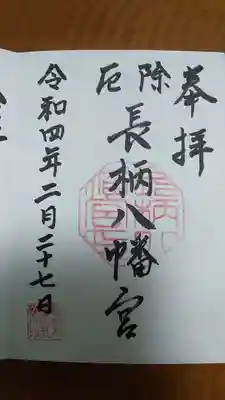 奉拝
厄除
長柄八幡宮
令和四年二月二十七日